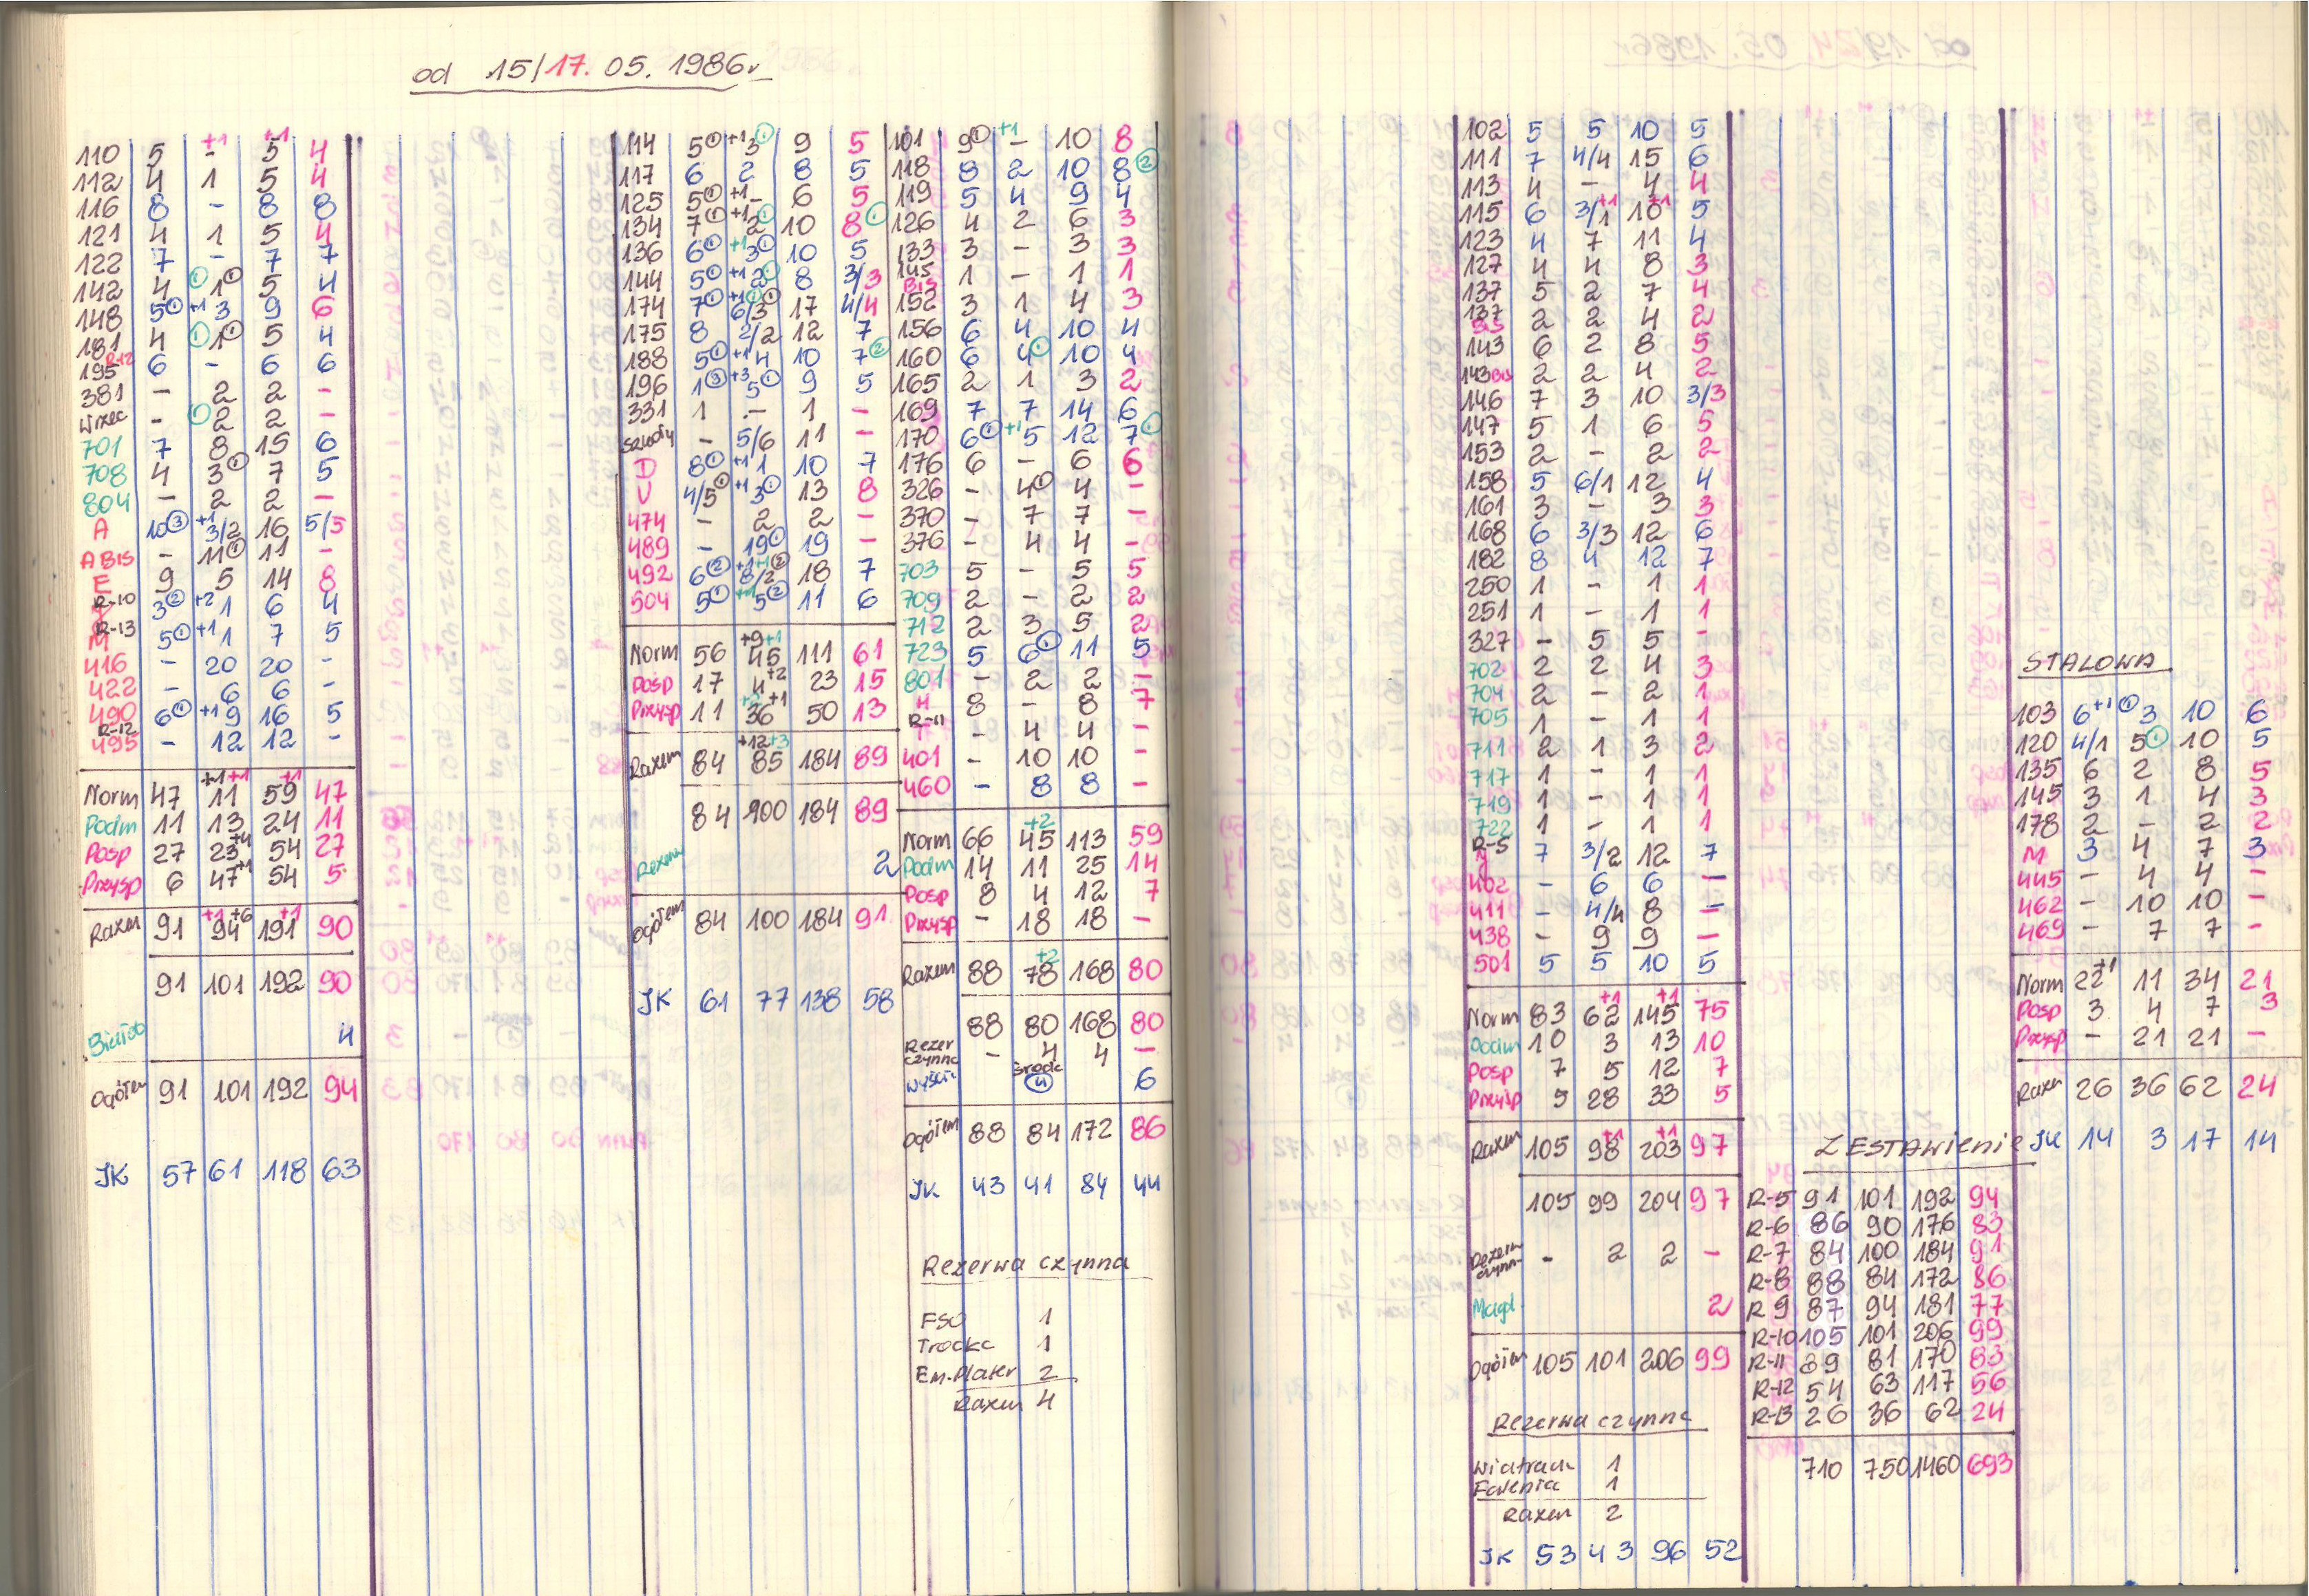 od 15/17. 05. 1986r
110 5 +1 - +1 5 4
112 4 1 5 4
116 8 - 8 8
121 4 1 5 4
122 7 - 7 7
142 4 ① 1① 5 4
148 5① +1 3 9 6
181 4 ① 1① 5 4
R-12
195 6 - 6 6
381 - 2 2 -
- ① 2 2 -
701 7 8 15 6
708 4 3① 7 5
804 - 2 2 -
A 10③ +1 3/2 16 5/5
A BIS - 11① 11 -
E 9 5 14 8
R-10 3② +2 1 6 4
R-13
M 5① +1 1 7 5
416 - 20 20 -
422 - 6 6 -
490 6① +1 9 16 5
R-12
495 - 12 12 -
Norm 47 +1 +1 11 +1 59 47
Podm 11 13 24 11
Posp 27 23 +4 54 27
Przysp 6 47 +1 54 5
Razem 91 +1 +6 94 +1 191 90
91 101 192 90
4
Ogółem 91 101 192 94
JK 57 61 118 63
114 5① +1 3① 9 5
117 6 2 8 5
125 5① +1 - 6 5
134 7① +1 2① 10 8①
136 6① +1 3① 10 5
144 5① +1 2① 8 3/3
174 7① +1 6/3① 17 4/4
175 8 2/2 12 7
188 5① +1 4 10 7②
196 1③ +3 5① 9 5
331 1 - 1 -
Szkoły - 5/6 11 -
D 8① +1 1 10 7
U 4/5① +1 3① 13 8
474 - 2 2 -
489 - 19① 19 -
492 6② +1 +1② 8/2 18 7
504 5① +1 5② 11 6
Norm 56 +9 +1 45 111 61
Posp 17 4 +2 23 15
Przysp 11 +2 +1 36 50 13
Razem 84 +12 +3 85 184 89
84 100 184 89
Rezerw 2
Ogółem 84 100 184 91
JK 61 77 138 58
101 9① +1 - 10 8
118 8 2 10 8②
119 5 4 9 4
126 4 2 6 3
133 3 - 3 3
145 BIS 1 - 1 1
152 3 1 4 3
156 6 4 10 4
160 6 4① 10 4
165 2 1 3 2
169 7 7 14 6
170 6① +1 5 12 7①
176 6 - 6 6
326 - 4① 4 -
370 - 7 7 -
376 - 4 4 -
703 5 - 5 5
709 2 - 2 2
712 2 3 5 2
723 5 6① 11 5
801 - 2 2 -
H 8 - 8 7
R-11
T - 4 4 -
401 - 10 10 -
460 - 8 8 -
Norm 66 +2 45 113 59
Podm 14 11 25 14
Posp 8 4 12 7
Przysp - 18 18 -
Razem 88 +2 78 168 80
88 80 168 80
Rezer czynna - 4 4 -
Wyści środa ④ 6
Ogółem 88 84 172 86
JK 43 41 84 44
Rezerwa czynna
FSO 1
Trocka 1
Em.Plater 2
Razem 4
102 5 5 10 5
111 7 4/4 15 6
113 4 - 4 4
115 6 3/1 +1 10 +1 5
123 4 7 11 4
127 4 4 8 3
137 5 2 7 4
137 BIS 2 2 4 2
143 6 2 8 5
143 BIS 2 2 4 2
146 7 3 10 3/3
147 5 1 6 5
153 2 - 2 2
158 5 6/1 12 4
161 3 - 3 3
168 6 3/3 12 6
182 8 4 12 7
250 1 - 1 1
251 1 - 1 1
327 - 5 5 -
702 2 2 4 3
704 2 - 2 1
705 1 - 1 1
711 2 1 3 2
717 1 - 1 1
719 1 - 1 1
722 1 - 1 1
R-5 7 3/2 12 7
402 - 6 6 -
411 - 4/4 8 -
438 - 9 9 -
501 5 5 10 5
Norm 83 +1 62 +1 145 75
Podm 10 3 13 10
Posp 7 5 12 7
Przysp 5 28 33 5
Razem 105 +1 98 +1 203 97
105 99 204 97
Rezerw czynn - 2 2 -
Magd 2
Ogółem 105 101 206 99
Rezerwa czynna
Wiatrak 1
Falenica 1
Razem 2
JK 53 43 96 52
ZESTAWIENIE
R-5 91 101 192 94
R-6 86 90 176 83
R-7 84 100 184 91
R-8 88 84 172 86
R-9 87 94 181 77
R-10 105 101 206 99
R-11 89 81 170 83
R-12 54 63 117 56
R-13 26 36 62 24
710 750 1460 693
STALOWA
103 6 +1 ① 3 10 6
120 4/1 5① 10 5
135 6 2 8 5
145 3 1 4 3
178 2 - 2 2
M 3 4 7 3
445 - 4 4 -
462 - 10 10 -
469 - 7 7 -
Norm 22 +1 11 34 21
Posp 3 4 7 3
Przysp - 21 21 -
Razem 26 36 62 24
JK 14 3 17 14